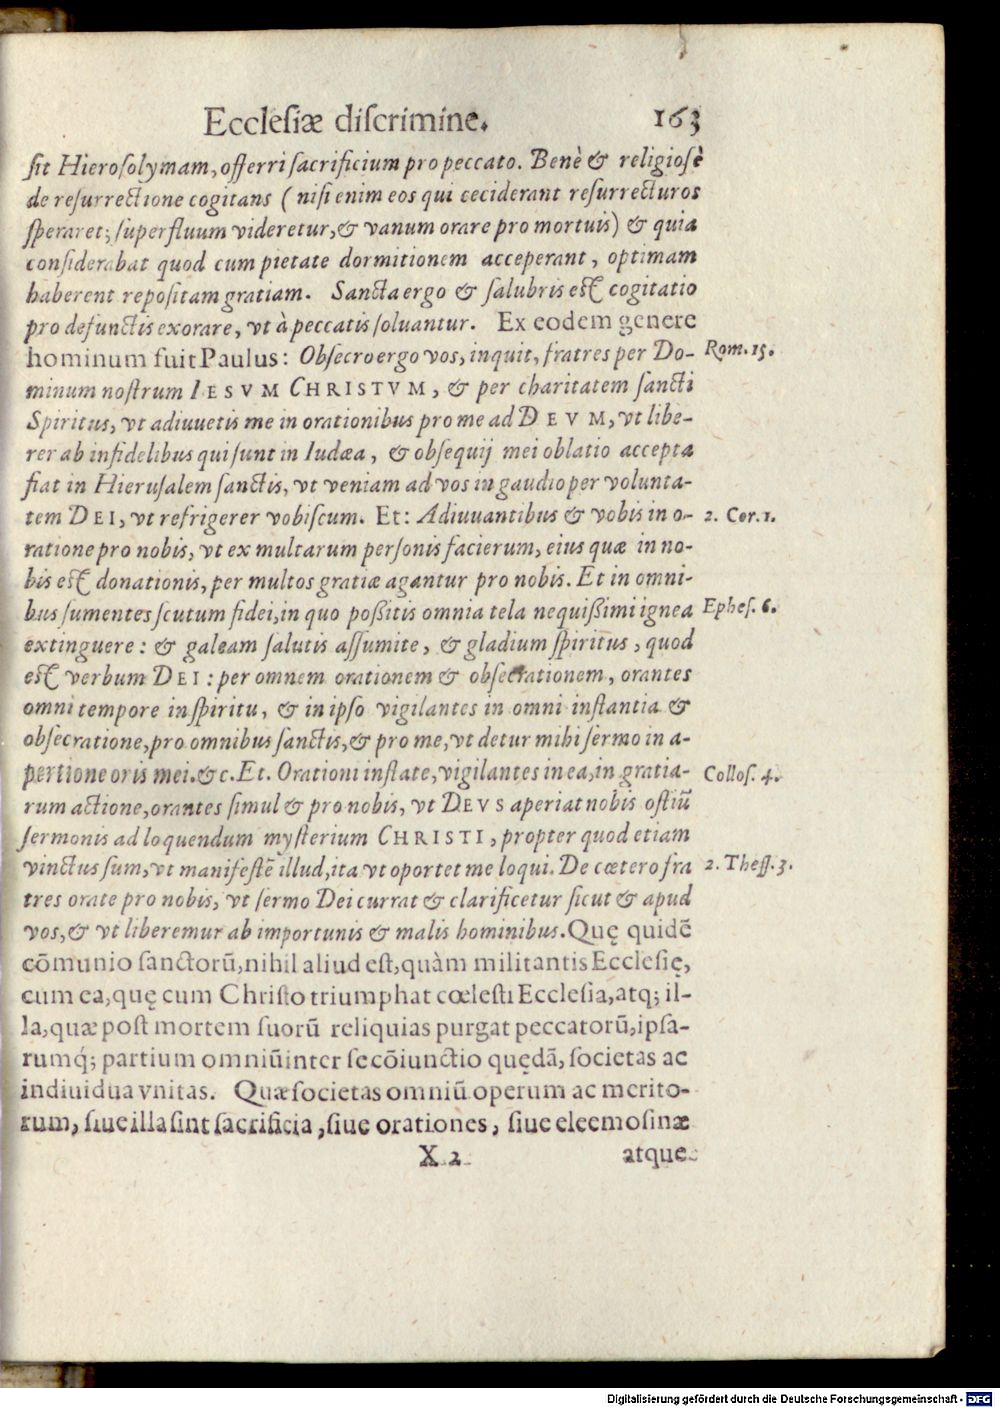 Ecclesiæ discrimine. 163
sit Hierosolymam, offerri sacrificium pro peccato. Benè & religiosè
de resurrectione cogitans ( nisi enim eos qui ceciderant resurrecturos
speraret; superfluum videretur, & vanum orare pro mortuis) & quia
considerabat quod cum pietate dormitionem acceperant, optimam
haberent repositam gratiam. Sancta ergo & salubris est cogitatio
pro defunctis exorare, vt à peccatis soluantur. Ex eodem genere
hominum fuit Paulus: Obsecro ergo vos, inquit, fratres per Do- Rom. 15.
minum nostrum IESVM CHRISTVM, & per charitatem sancti
Spiritus, vt adiuuetis me in orationibus pro me ad DEVM, vt libe-
rer ab infidelibus qui sunt in Iudæa, & obsequij mei oblatio accepta
fiat in Hierusalem sanctis, vt veniam ad vos in gaudio per volunta-
tem DEI, vt refrigerer vobiscum. Et: Adiuuantibus & vobis in o- 2. Cor. 1.
ratione pro nobis, vt ex multarum personis facierum, eius quæ in no-
bis est donationis, per multos gratiæ agantur pro nobis. Et in omni-
bus sumentes scutum fidei, in quo poßitis omnia tela nequißimi ignea Ephes. 6.
extinguere: & galeam salutis assumite, & gladium spiritus, quod
est verbum DEI: per omnem orationem & obsecrationem, orantes
omni tempore in spiritu, & in ipso vigilantes in omni instantia &
obsecratione, pro omnibus sanctis, & pro me, vt detur mihi sermo in a-
pertione oris mei. &c. Et. Orationi instate, vigilantes in ea, in gratia- Collos. 4.
rum actione, orantes simul & pro nobis, vt DEVS aperiat nobis ostiũ
sermonis ad loquendum mysterium CHRISTI, propter quod etiam
vinctus sum, vt manifestẽ illud, ita vt oportet me loqui. De cœtero fra 2. Thess. 3.
tres orate pro nobis, vt sermo Dei currat & clarificetur sicut & apud
vos, & vt liberemur ab importunis & malis hominibus. Quę quidẽ
cõmunio sanctorũ, nihil aliud est, quàm militantis Ecclesię,
cum ea, quę cum Christo triumphat cœlesti Ecclesia, atq; il-
la, quæ post mortem suorũ reliquias purgat peccatorũ, ipsa-
rumq́; partium omniũ inter se cõiunctio quędã, societas ac
indiuidua vnitas. Quæ societas omniũ operum ac merito-
rum, siue illa sint sacrificia, siue orationes, siue eleemosinæ
X 2 atque
Digitalisierung gefördert durch die Deutsche Forschungsgemeinschaft - DFG